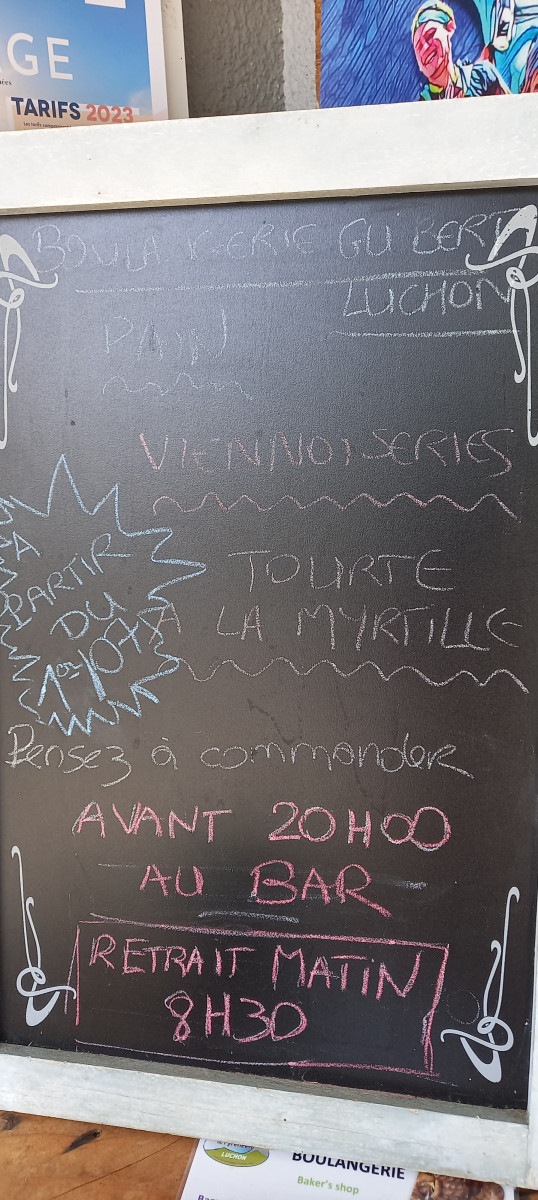 GE
TARIFS 2023
BOULANGERIE GUIBERT
LUCHON
PAIN
VIENNOISERIES
À
PARTIR
DU
1er/07
TOURTE
À LA MYRTILLE
Pensez à commander
AVANT 20H00
AU BAR
RETRAIT MATIN
8H30
LUCHON
BOULANGERIE
Baker's shop